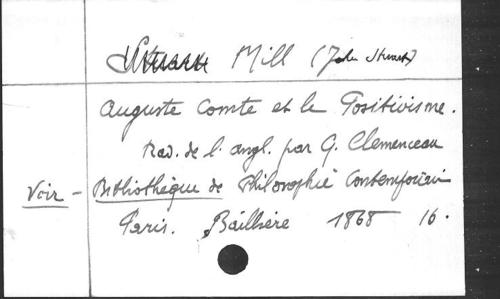 Mill (John Stuart)
Auguste Comte et le Positivisme.
Trad. de l'angl. par G. Clemenceau
Voir - Bibliothèque de Philosophie Contemporain
Paris. Baillière 1868 16.